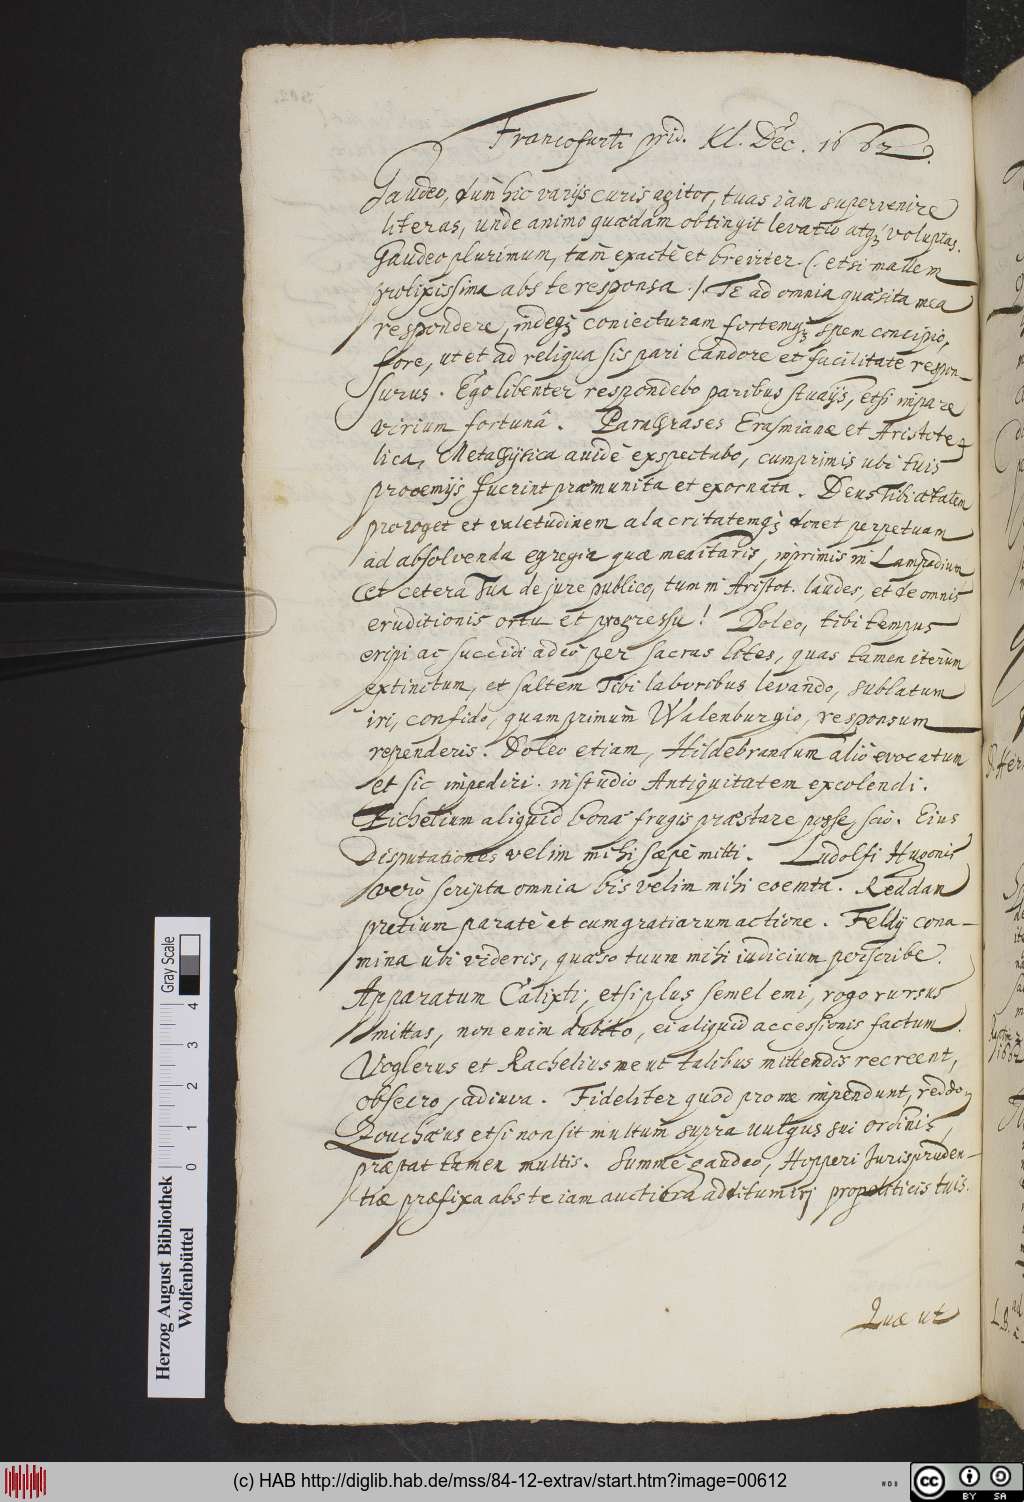 Francofurti prid. Kl. Dec. 1662.
Gaudeo, dum hic varijs curis agitor, tuas iam supervenire
literas, unde animo quædam obtingit levatio atq; voluptas.
Gaudeo plurimum, tam exactè et breviter (: etsi mallem
prolixissima abs te responsa :) Te ad omnia quæsita mea
respondere, indeq; coniecturam fortemq; spem concipio,
fore, ut et ad reliqua sis pari candore et facilitate respon-
surus. Ego libenter respondebo paribus studijs, etsi impare
virium fortunâ. Paraphrases Erasmianæ et Aristote-
lica, Metaphysica avidè exspectabo, cumprimis ubi tuis
procemijs fuerint præmunita et exornata. Deus tibi ætatem
proroget et valetudinem alacritatemq; donet perpetuam
ad absolvenda egregia quæ meditaris, inprimis in Lampadium
et cetera Tua de jure publico, tum in Aristot. laudes, et de omnis
eruditionis ortu et progressu! Doleo, tibi tempus
eripi ac succidi adeò per sacras lites, quas tamen iterum
extinctum, et saltem Tibi laboribus levando, sublatum
iri, confido, quamprimum Walenburgio, responsum
rependeris. Doleo etiam, Hildebrandum aliò evocatum
et sic impediri in studio Antiquitatem excolendi.
Eichelium aliquid bonæ frugis præstare posse, scio. Eius
Disputationes velim mihi sæpè mitti. Ludolfi Hugonis
verò scripta omnia bis velim mihi coemta. Reddam
pretium paratè et cum gratiarum actione. Feldij cona-
mina ubi videris, quæso tuum mihi iudicium perscribe.
Apparatum Calixti, etsi plus semel emi, rogo rursus
mittas, non enim dubito, ei aliquid accessionis factum.
Voglerus et Rachelius me ut talibus mittendis recreent,
obsecro, adiuva. Fideliter quod pro me impendunt, reddo.
Zouchæus etsi non sit multum supra vulgus sui ordinis,
præstat tamen multis. Summè gaudeo, Hopperi Jurispruden-
tiæ præfixa abs te iam auctiora additum irj propoliticis tuis.
Quæ ut
Herzog August Bibliothek
Wolfenbüttel
Gray Scale
0 1 2 3 4
(c) HAB http://diglib.hab.de/mss/84-12-extrav/start.htm?image=00612
WDB
cc BY SA